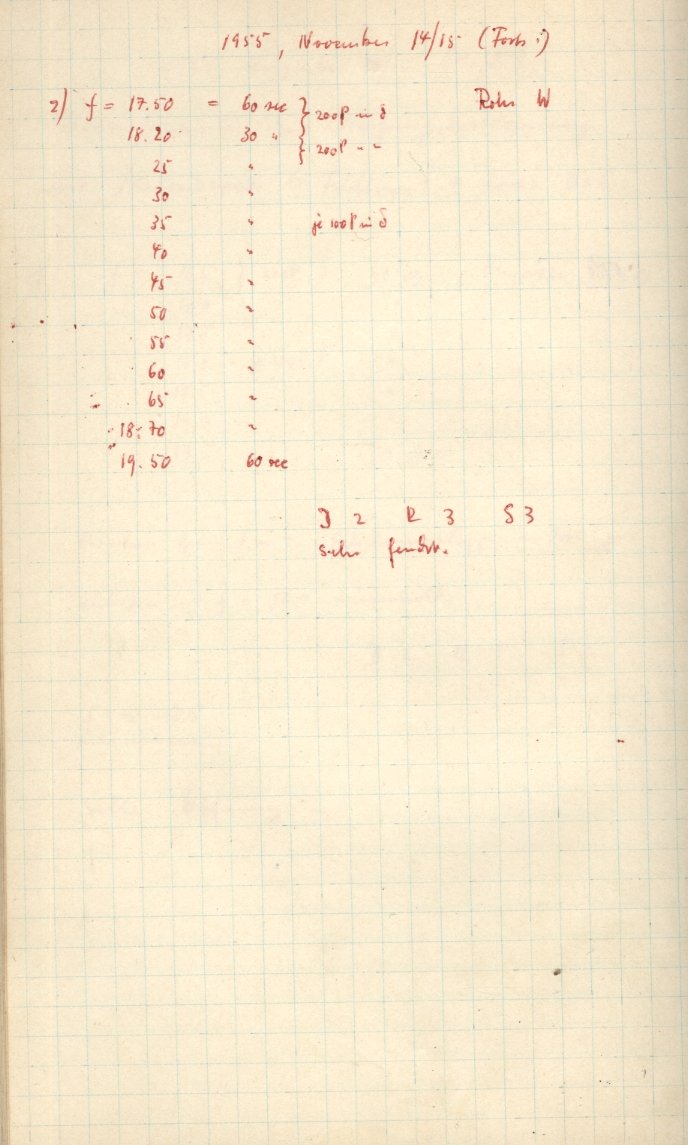 1955, November 14/15 (Forts.)
2) f = 17.50 = 60 sec } 200 P in δ Rohr W
18.20 30 " } 200 P " "
25 "
30 "
35 " je 100 P in δ
40 "
45 "
50 "
55 "
60 "
65 "
18.70 "
19.50 60 sec
J 2 R 3 S 3
sehr feucht.